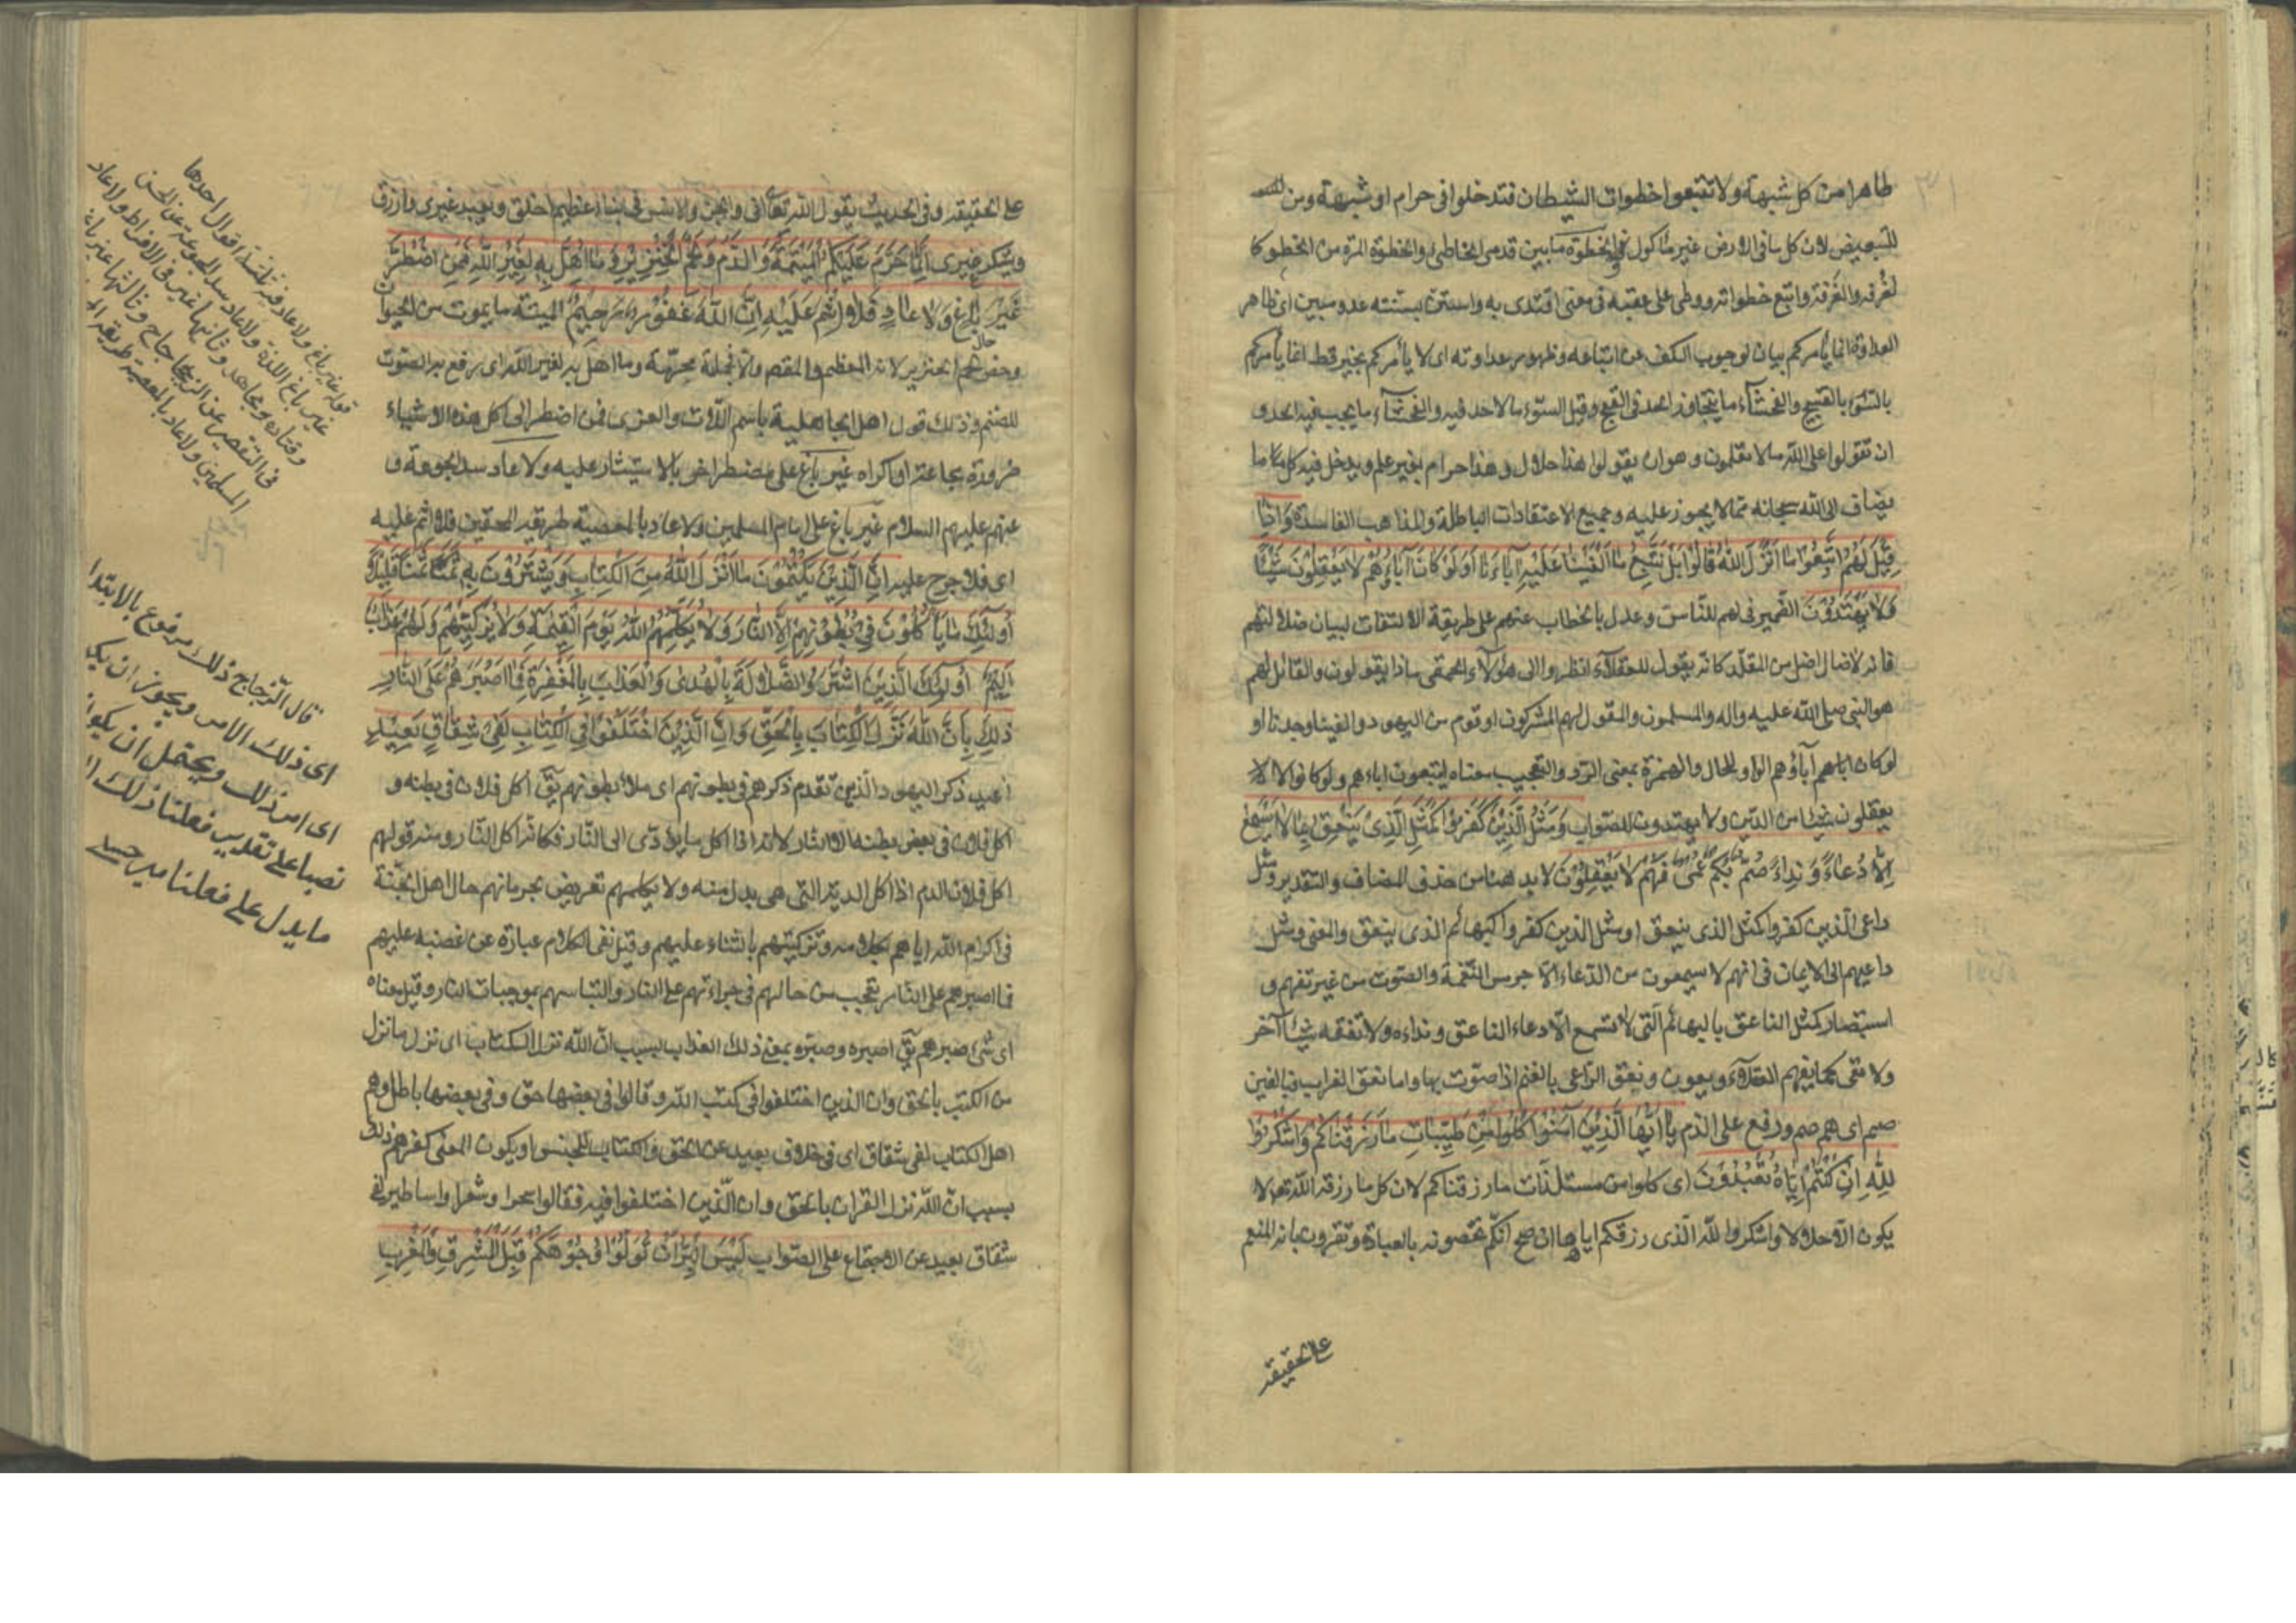 طاهرا من كل شبهة ولا تتبعوا خطوات الشيطان فتدخلوا في حرام او شبهة ومن
للتبعيض لان كل ما في الارض غير مأكول والخطوة ما بين قدمي الخاطئ والخطوة المرة من الخطو كا
لغرفة والغرفة واتبع خطواته ووطى على عقبه في معنى اقتدى به واستن بسنته عدو مبين اى ظاهر
العداوة انما يأمركم بيان لوجوب الكف عن اتباعه وظهور عداوته اى لا يأمركم بخير قط انما يأمركم
بالسّوء بالقبيح والفحشآء ما يتجاوز الحد فى القبح وقيل السّوء ما لا حد فيه والفحشآء ما يجب فيه الحد و
ان تقولوا على اللّه ما لا تعلمون وهو ان يقولوا هذا حلال وهذا حرام بغير علم ويدخل فيه كل ما
يضاف الى اللّه سبحانه ممّا لا يجوز عليه وجميع الاعتقادات الباطلة والمذاهب الفاسدة وَاِذٰا
قِيْلَ لَهُمُ اتَّبِعُوْا مٰا اَنْزَلَ اللّٰهُ قٰالُوْا بَلْ نَتَّبِعُ مٰا اَلْفَيْنٰا عَلَيْهِ آبٰاءَنٰا اَوَلَوْ كٰانَ آبٰاؤُهُمْ لٰا يَعْقِلُوْنَ شَيْئًا
وَلٰا يَهْتَدُوْنَ الضّمير فى لهم للنّاس وعدل بالخطاب عنهم على طريقة الالتفات لبيان ضلالتهم
فانه لا ضال اضل من المقلّد كانه يقول للعقلآء انظروا الى هؤلآء الحمقى ماذا يقولون والقائل لهم
هو النبى صلى اللّه عليه واله والمسلمون والمقول لهم المشركون او قوم من اليهود والفينا وجدنا او
لو كان اباهم آباؤهم الواو للحال والهمزة بمعنى الرّد والتعجيب معناه ايتبعون اباءهم ولو كانوا لا
يعقلون شيئا من الدّين ولا يهتدون للصّواب وَمَثَلُ الَّذِيْنَ كَفَرُوْا كَمَثَلِ الَّذِىْ يَنْعِقُ بِمٰا لٰا يَسْمَعُ
اِلّٰا دُعٰاءً وَنِدٰاءً صُمٌّ بُكْمٌ عُمْىٌ فَهُمْ لٰا يَعْقِلُوْنَ لا بد هنا من حذف المضاف والتقدير ومثل
داعى الّذين كفروا كمثل الذى ينعق او مثل الذين كفروا كبهائم الذى ينعق والمعنى ومثل
داعيهم الى الايمان فى انهم لا يسمعون من الدّعاء الّا جرس النّغمة والصّوت من غير تفهم و
استبصار كمثل الناعق بالبهائم الّتى لا تسمع الّا دعاء الناعق ونداءه ولا تفقه شيئا آخر
ولا تعى كما يفهم العقلآء ويعون ونعق الرّاعى بالغنم اذا صوّت بها واما نعق الغراب فبالغين
صم اى هم صم ورفع على الذم يٰا اَيُّهَا الَّذِيْنَ اٰمَنُوْا كُلُوْا مِنْ طَيِّبٰاتِ مٰا رَزَقْنٰاكُمْ وَاشْكُرُوْا
لِلّٰهِ اِنْ كُنْتُمْ اِيّٰاهُ تَعْبُدُوْنَ اى كلوا من مستلذّات ما رزقناكم لان كل ما رزقه اللّه تعالى لا
يكون الّا حلالا واشكروا للّه الّذى رزقكم اياها ان صح انّكم تخصونه بالعبادة وتقرون بانه المنعم
على الحقيقه
على الحقيقه وفى الحديث يقول اللّه تعالى انى والجن والانس فى نباء عظيم اخلق ويعبد غيرى وارزق
ويشكر غيرى اِنَّمٰا حَرَّمَ عَلَيْكُمُ الْمَيْتَةَ وَالدَّمَ وَلَحْمَ الْخِنْزِيْرِ وَمٰا اُهِلَّ بِهِ لِغَيْرِ اللّٰهِ فَمَنِ اضْطُرَّ
غَيْرَ بٰاغٍ وَلٰا عٰادٍ فَلٰا اِثْمَ عَلَيْهِ اِنَّ اللّٰهَ غَفُوْرٌ رَحِيْمٌ الميتة ما يموت من الحيوان
وخص لحم الخنزير لانه المعظم والمقصود والا فجملته محرّمة وما اهل به لغير اللّه اى رفع به الصّوت
للصّنم وذلك قول اهل الجاهلية باسم اللّات والعزى فمن اضطر الى اكل هذه الاشياء
ضرورة مجاعة او اكراه غير باغ على مضطر اخر بالاستيثار عليه ولا عاد سد الجوعة و
عنهم عليهم السلام غير باغ على امام المسلمين ولا عاد بالمعصية طريقه المحقين فلا اثم عليه
اى فلا حرج عليه اِنَّ الَّذِيْنَ يَكْتُمُوْنَ مٰا اَنْزَلَ اللّٰهُ مِنَ الْكِتٰابِ وَيَشْتَرُوْنَ بِهِ ثَمَنًا قَلِيْلًا
اُولٰئِكَ مٰا يَأْكُلُوْنَ فِىْ بُطُوْنِهِمْ اِلَّا النّٰارَ وَلٰا يُكَلِّمُهُمُ اللّٰهُ يَوْمَ الْقِيٰمَةِ وَلٰا يُزَكِّيْهِمْ وَلَهُمْ عَذٰابٌ
اَلِيْمٌ اُولٰئِكَ الَّذِيْنَ اشْتَرَوُا الضَّلٰالَةَ بِالْهُدٰى وَالْعَذٰابَ بِالْمَغْفِرَةِ فَمٰا اَصْبَرَهُمْ عَلَى النّٰارِ
ذٰلِكَ بِاَنَّ اللّٰهَ نَزَّلَ الْكِتٰابَ بِالْحَقِّ وَاِنَّ الَّذِيْنَ اخْتَلَفُوْا فِى الْكِتٰابِ لَفِىْ شِقٰاقٍ بَعِيْدٍ
اعيد ذكر اليهود الّذين تقدم ذكرهم فى بطونهم اى ملأ بطونهم يقٓ اكل فلان فى بطنه و
اكل فلان فى بعض بطنه الا النار لانه اذا اكل ما يؤدّى الى النّار فكانه اكل النّار ومنه قولهم
اكل فلان الدم اذا اكل الدية التى هى بدل منه ولا يكلمهم تعريض بحرمانهم حال اهل الجنّة
فى اكرام اللّه اياهم بكلامه وتزكيتهم بالثناء عليهم وقيل نفى الكلام عبارة عن غضبه عليهم
فما اصبرهم على النّار تعجب من حالهم فى جراءتهم على النار والتباسهم بموجبات النار وقيل معناه
اى شئ صبرهم يقٓ اصبره وصبّره بمعنى ذلك العذاب بسبب انّ اللّه نزل الكتاب اى نزل ما نزل
من الكتب بالحق وان الذين اختلفوا فى كتب اللّه وقالوا فى بعضها حق وفى بعضها باطل وهم
اهل الكتاب لفى شقاق اى فى خلاف بعيد عن الحق والكتاب للجنس او يكون المعنى كفرهم ذلك
بسبب انّ اللّه نزل القران بالحق وان الّذين اختلفوا فيه فقالوا سحر او شعر او اساطير لفى
شقاق بعيد عن الاجتماع على الصّواب لَيْسَ الْبِرَّ اَنْ تُوَلُّوْا وُجُوْهَكُمْ قِبَلَ الْمَشْرِقِ وَالْمَغْرِبِ
قوله غير باغ ولا عاد فيه ثلثة اقوال احدها
غير باغ اللذة ولا عاد سد الجوعة عن الحسن
وقتاده ومجاهد وثانيها غير فى الافراط ولا عاد
فى التقصير عن الزجاج وثالثها غير باغ
المسلمين ولا عاد بالمعصية طريقه
قال الزّجاج ذلك مرفوع بالابتدا
اى ذلك الامر ويجوز ان يك
اى امر ذلك ويحتمل ان يكو
نصبا على تقدير فعلنا ذلك
ما يدل على فعلنا